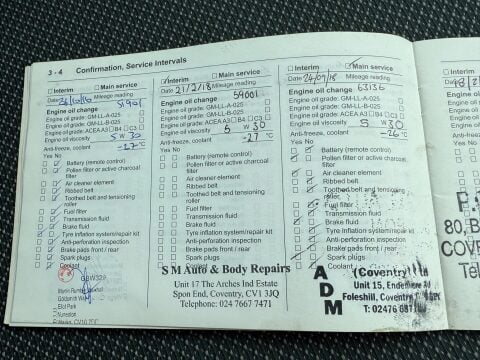 3 - 4 Confirmation, Service Intervals
Interim Main service
Date Mileage reading
Engine oil change 51901
Engine oil grade: GM-LL-A-025
Engine oil grade: GM-LL-B-025
Engine oil grade: ACEA A3 B4 C3
Engine oil viscosity 5 W 30
Anti-freeze, coolant -27 °C
Yes No
Battery (remote control)
Pollen filter or active charcoal
filter
Air cleaner element
Ribbed belt
Toothed belt and tensioning
roller
Fuel filter
Transmission fluid
Brake fluid
Tyre inflation system/repair kit
Anti-perforation inspection
Brake pads front / rear
Spark plugs
Coolant
Interim Main service
Date 21/2/18 Mileage reading
Engine oil change 59001
Engine oil grade: GM-LL-A-025
Engine oil grade: GM-LL-B-025
Engine oil grade: ACEA A3 B4 C3
Engine oil viscosity 5 W 30
Anti-freeze, coolant -27 °C
Yes No
Battery (remote control)
Pollen filter or active charcoal
filter
Air cleaner element
Ribbed belt
Toothed belt and tensioning
roller
Fuel filter
Transmission fluid
Brake fluid
Tyre inflation system/repair kit
Anti-perforation inspection
Brake pads front / rear
Spark plugs
S M Auto & Body Repairs
Unit 17 The Arches Ind Estate
Spon End, Coventry, CV1 3JQ
Telephone: 024 7667 7471
Interim Main service
Date 24/09/18 Mileage reading
Engine oil change 63136
Engine oil grade: GM-LL-A-025
Engine oil grade: GM-LL-B-025
Engine oil grade: ACEA A3 B4 C3
Engine oil viscosity 5 W 30
Anti-freeze, coolant -26 °C
Yes No
Battery (remote control)
Pollen filter or active charcoal
filter
Air cleaner element
Ribbed belt
Toothed belt and tensioning
roller
Fuel filter
Transmission fluid
Brake fluid
Tyre inflation system/repair kit
Anti-perforation inspection
Brake pads front / rear
Spark plugs
Coolant
ADM
(Coventry)
Unit 15,
Foleshill, Coventry
T: 02476
80,
COV
Tel